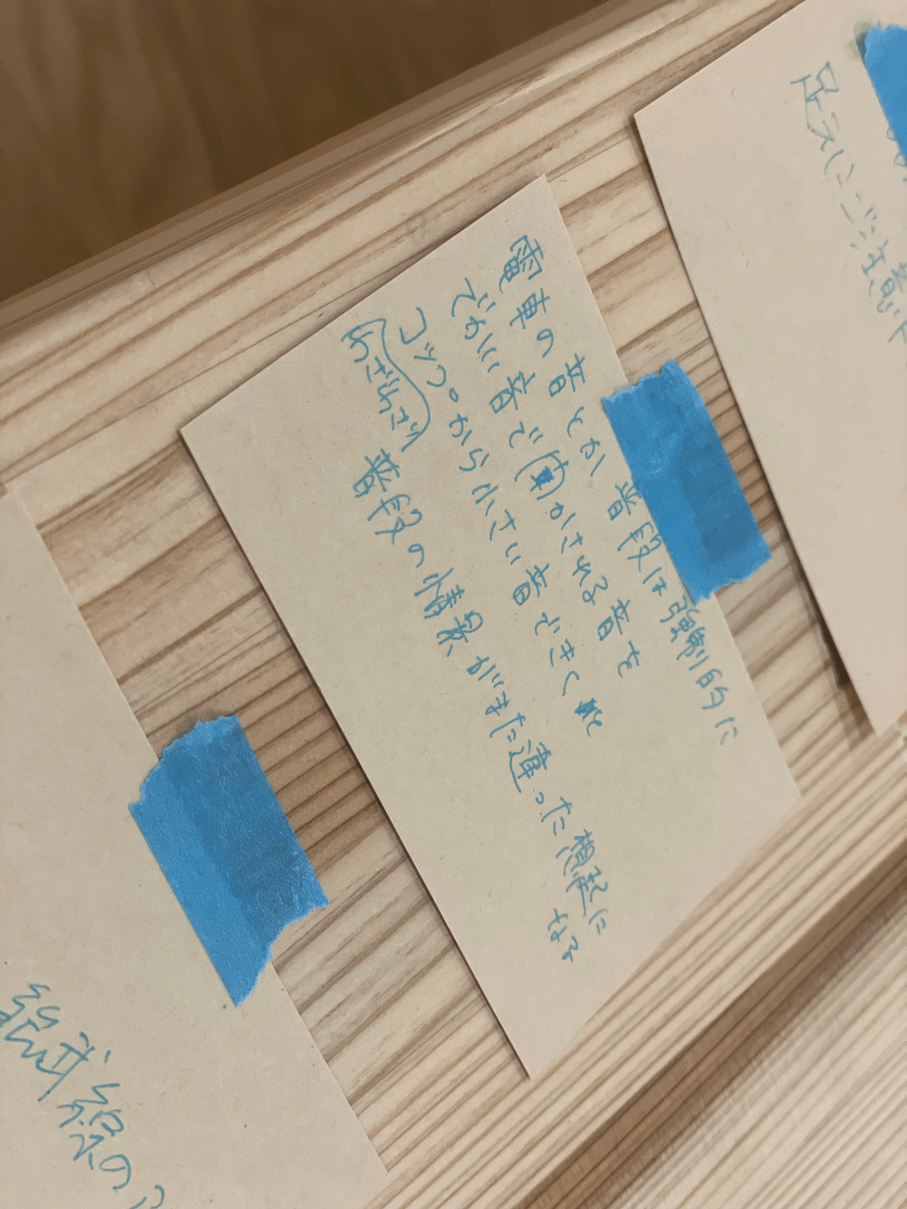 足元にご注意下
電車の音とか普段は強制的に
でかい音で聞かされる音を
コップから小さい音できくと
わざわざ
普段の情景がまた違った想起に
なる
総武線の